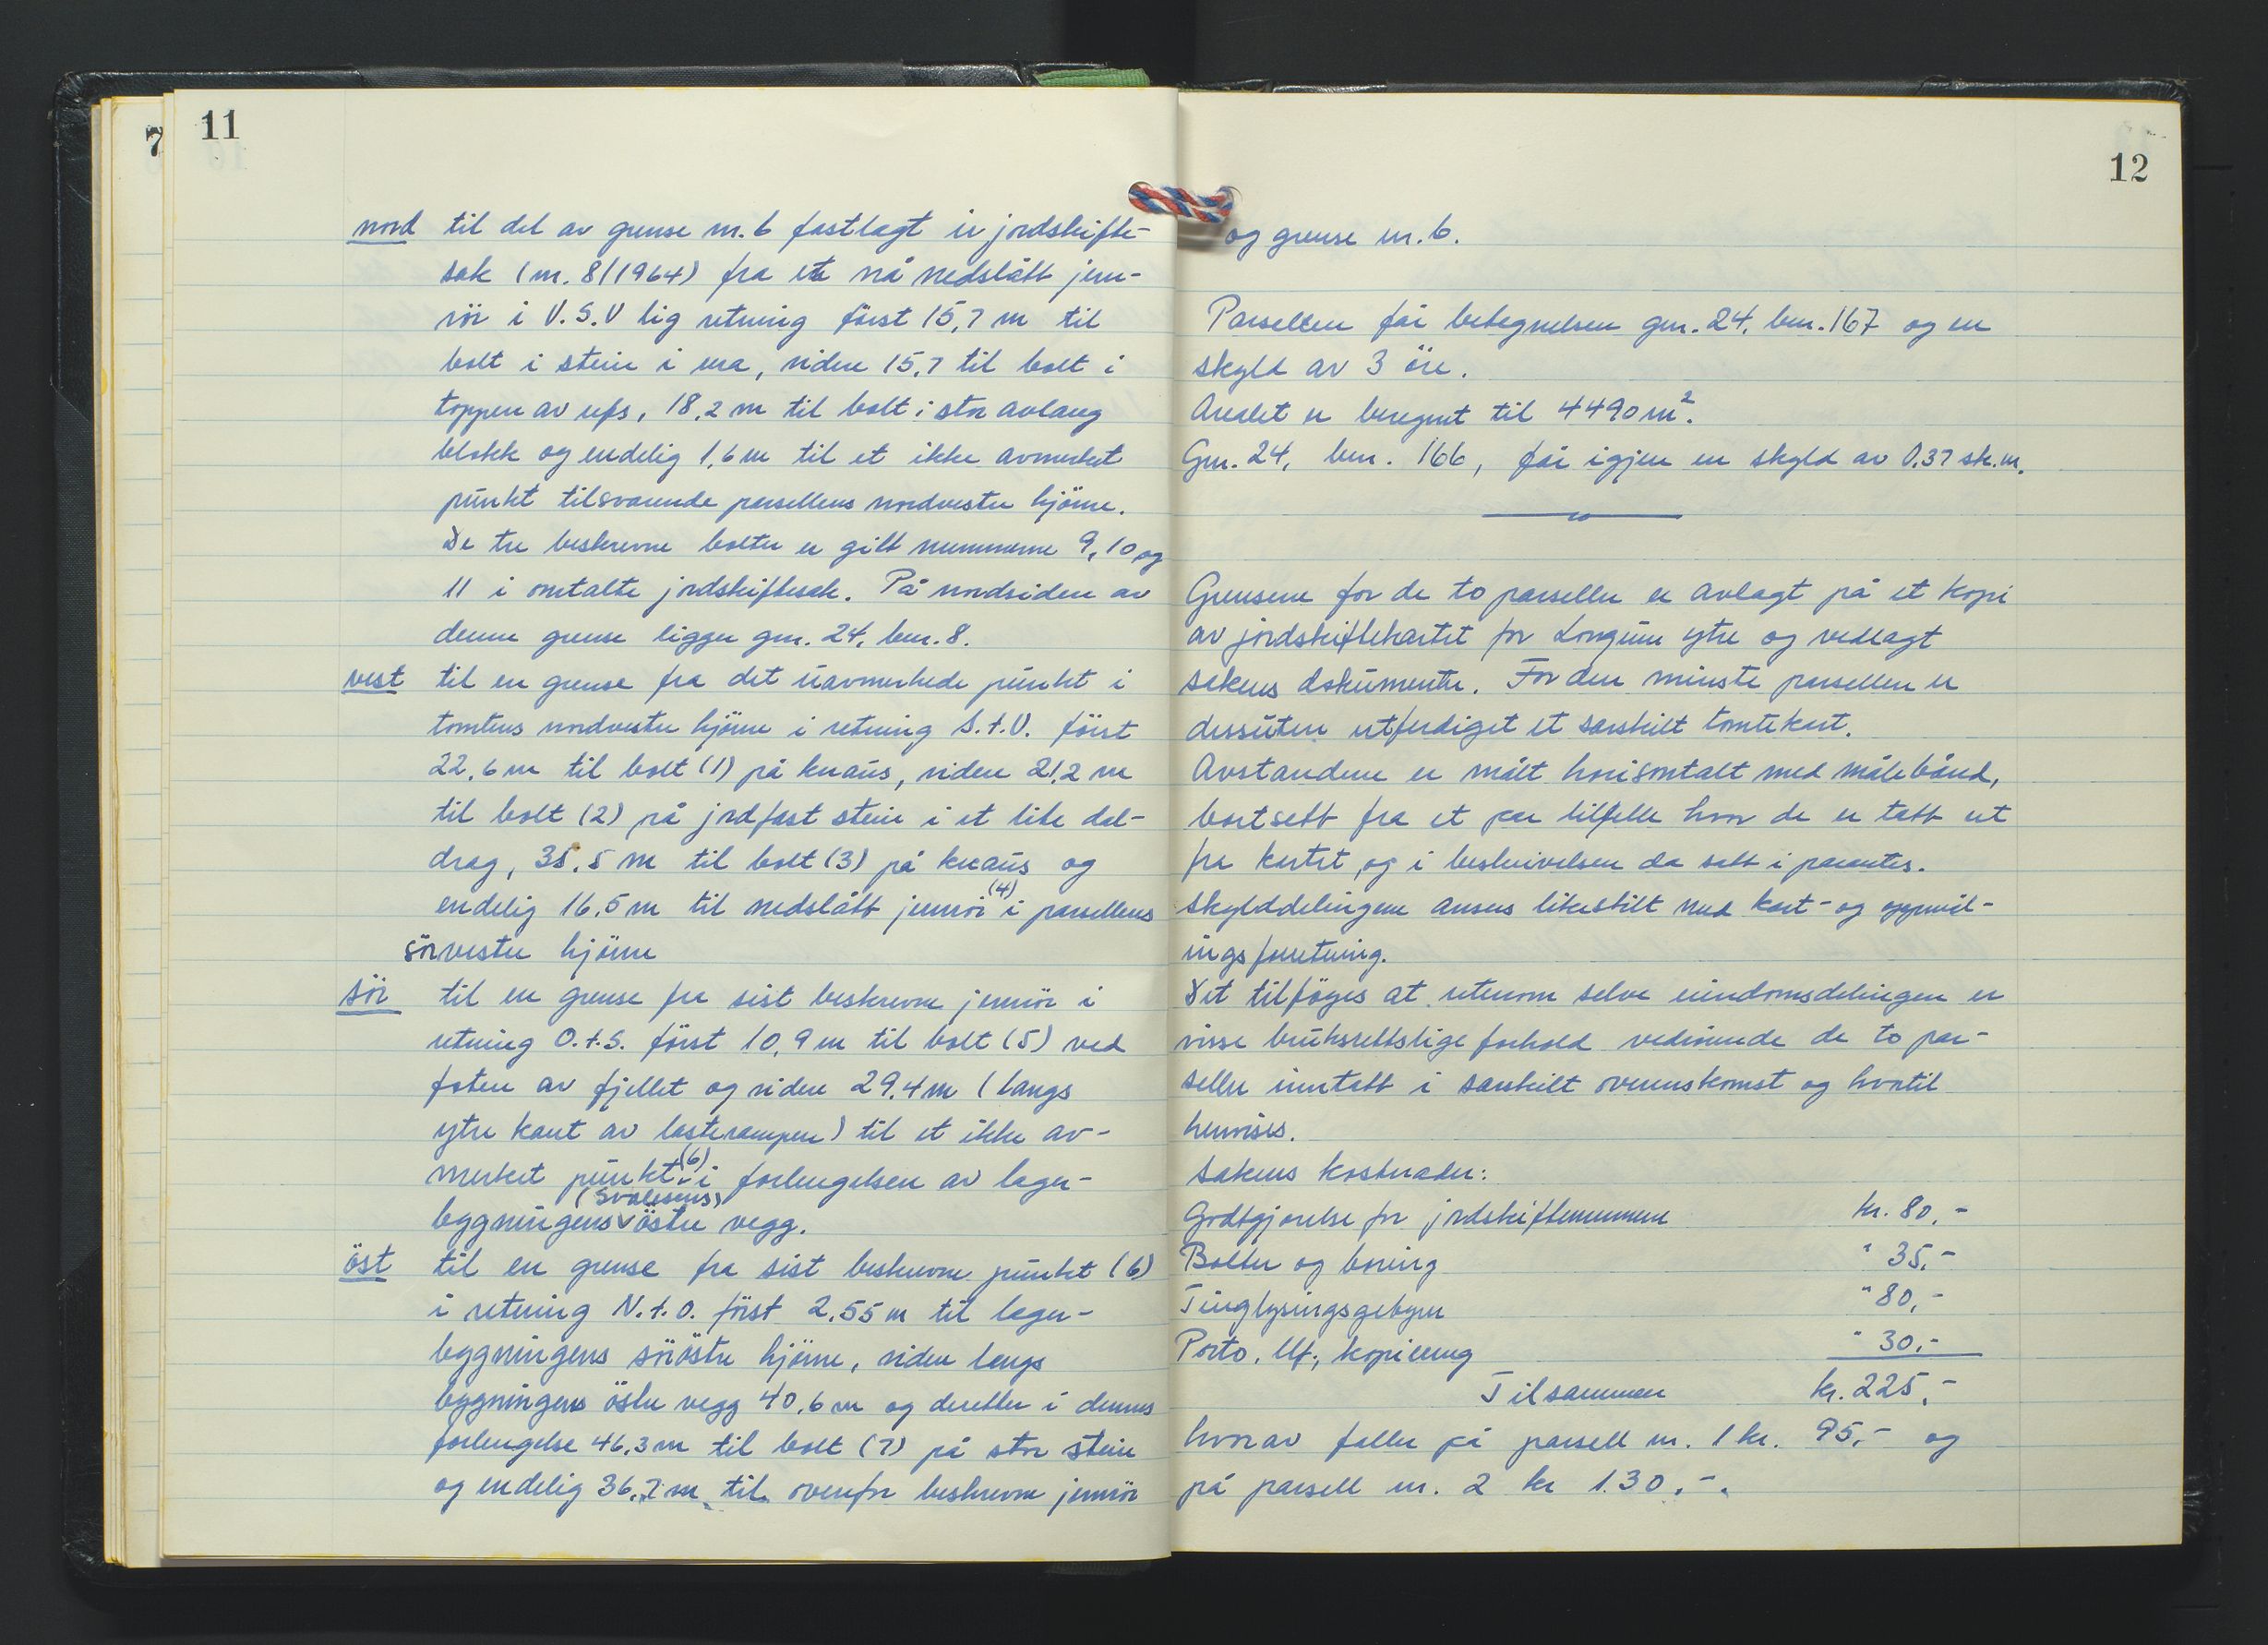 7
11
nord til del av grense nr. 6 fastlagt i jordskifte-
sak (nr. 8/1964) fra et nå nedslått jern-
rör i V.S.V lig retning först 15,7 m til
bolt i stein i ura, videre 15,7 til bolt i
toppen av ufs, 18,2 m til bolt i stor avlang
blokk og endelig 1,6 m til et ikke avmerket
punkt tilsvarende parsellens nordvestre hjörne.
De tre beskrevne bolter er gitt nummerne 9, 10 og
11 i omtalte jordskiftesak. På nordsiden av
denne grense ligger gnr. 24, bnr. 8.
vest til en grense fra det uavmerkede punkt i
tomtens nordvestre hjörne i retning S.t.V. först
22,6 m til bolt (1) på knaus, videre 21,2 m
til bolt (2) på jordfast stein i et lite dal-
drag, 35,5 m til bolt (3) på knaus og
endelig 16,5 m til nedslått jernrör (4) i parsellens
sörvestre hjörne
sör til en grense fra sist beskrevne jernrör i
retning O.t.S. först 10,9 m til bolt (5) ved
foten av fjellet og videre 29,4 m (langs
ytre kant av lasterampen) til et ikke av-
merket punkt (6) i forlengelsen av lager-
bygningens (Svalesens) östre vegg.
öst til en grense fra sist beskrevne punkt (6)
i retning N.t.O. först 2,55 m til lager-
bygningens söröstre hjörne, videre langs
bygningens östre vegg 40,6 m og deretter i dennes
forlengelse 46,3 m til bolt (7) på stor stein
og endelig 36,7 m til ovenfor beskrevne jernrör
12
og grense nr. 6.
Parsellen får betegnelsen gnr. 24, bnr. 167 og en
skyld av 3 öre.
Arealet er beregnet til 4490 m².
Gnr. 24, bnr. 166, får igjen en skyld av 0.37 sk.m.
Grensene for de to parseller er avlagt på et kopi
av jordskiftekartet for Longum ytre og vedlagt
sakens dokumenter. For den minste parsellen er
dessuten utferdiget et særskilt tomtekart.
Avstandene er målt horisontalt med målebånd,
bortsett fra et par tilfelle hvor de er tatt ut
fra kartet, og i beskrivelsen da satt i parantes.
Skylddelingene anses likestilt med kart- og oppmål-
ingsforretning.
Det tilföyes at utenom selve eiendomsdelingen er
visse bruksrettslige forhold vedrörende de to par-
seller inntatt i særskilt overenskomst og hvortil
henvises.
Sakens kostnader:
Godtgjørelse for jordskiftemennene kr. 80,-
Bolter og boring " 35,-
Tinglysingsgebyrer " 80,-
Porto, tlf., kopiering " 30,-
Tilsammen kr. 225,-
hvorav faller på parsell nr. 1 kr. 95,- og
på parsell nr. 2 kr 130,-.